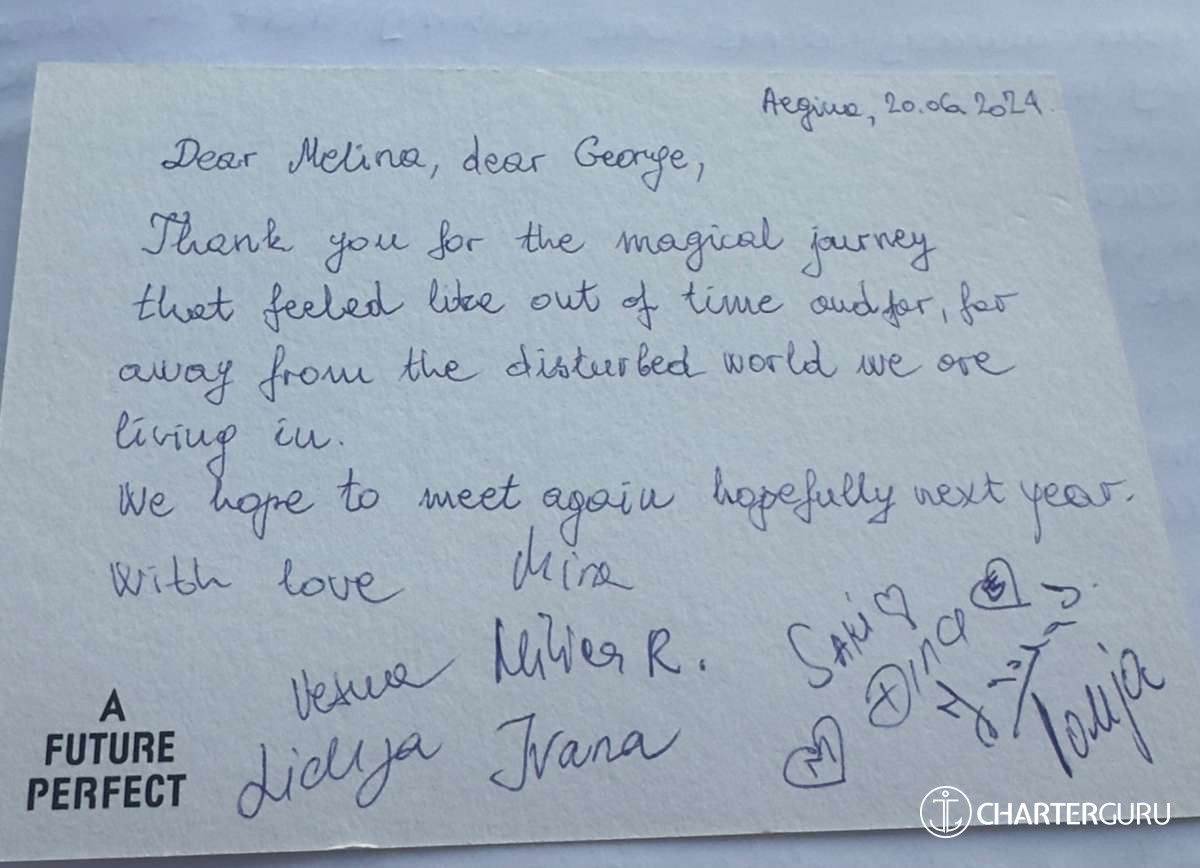 Aegina, 20.06.2024.
Dear Melina, dear George,
Thank you for the magical journey
that feeled like out of time and far, far
away from the disturbed world we are
living in.
We hope to meet again hopefully next year.
With love Mira
Vesna R.
SAKI
Dina
Lidija Ivana
Tanja
A
FUTURE
PERFECT
CHARTERGURU